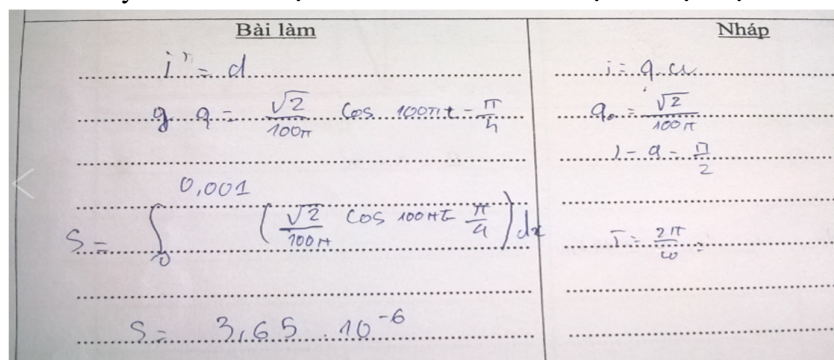 Bài làm
i' = d
q = √2/100π cos 100πt - π/4
S = ∫₀^0,001 (√2/100π cos 100πt - π/4) dx
S = 3,65 . 10⁻⁶
Nháp
i = q ω
q₀ = √2/100π
i - q - π/2
T = 2π/ω =